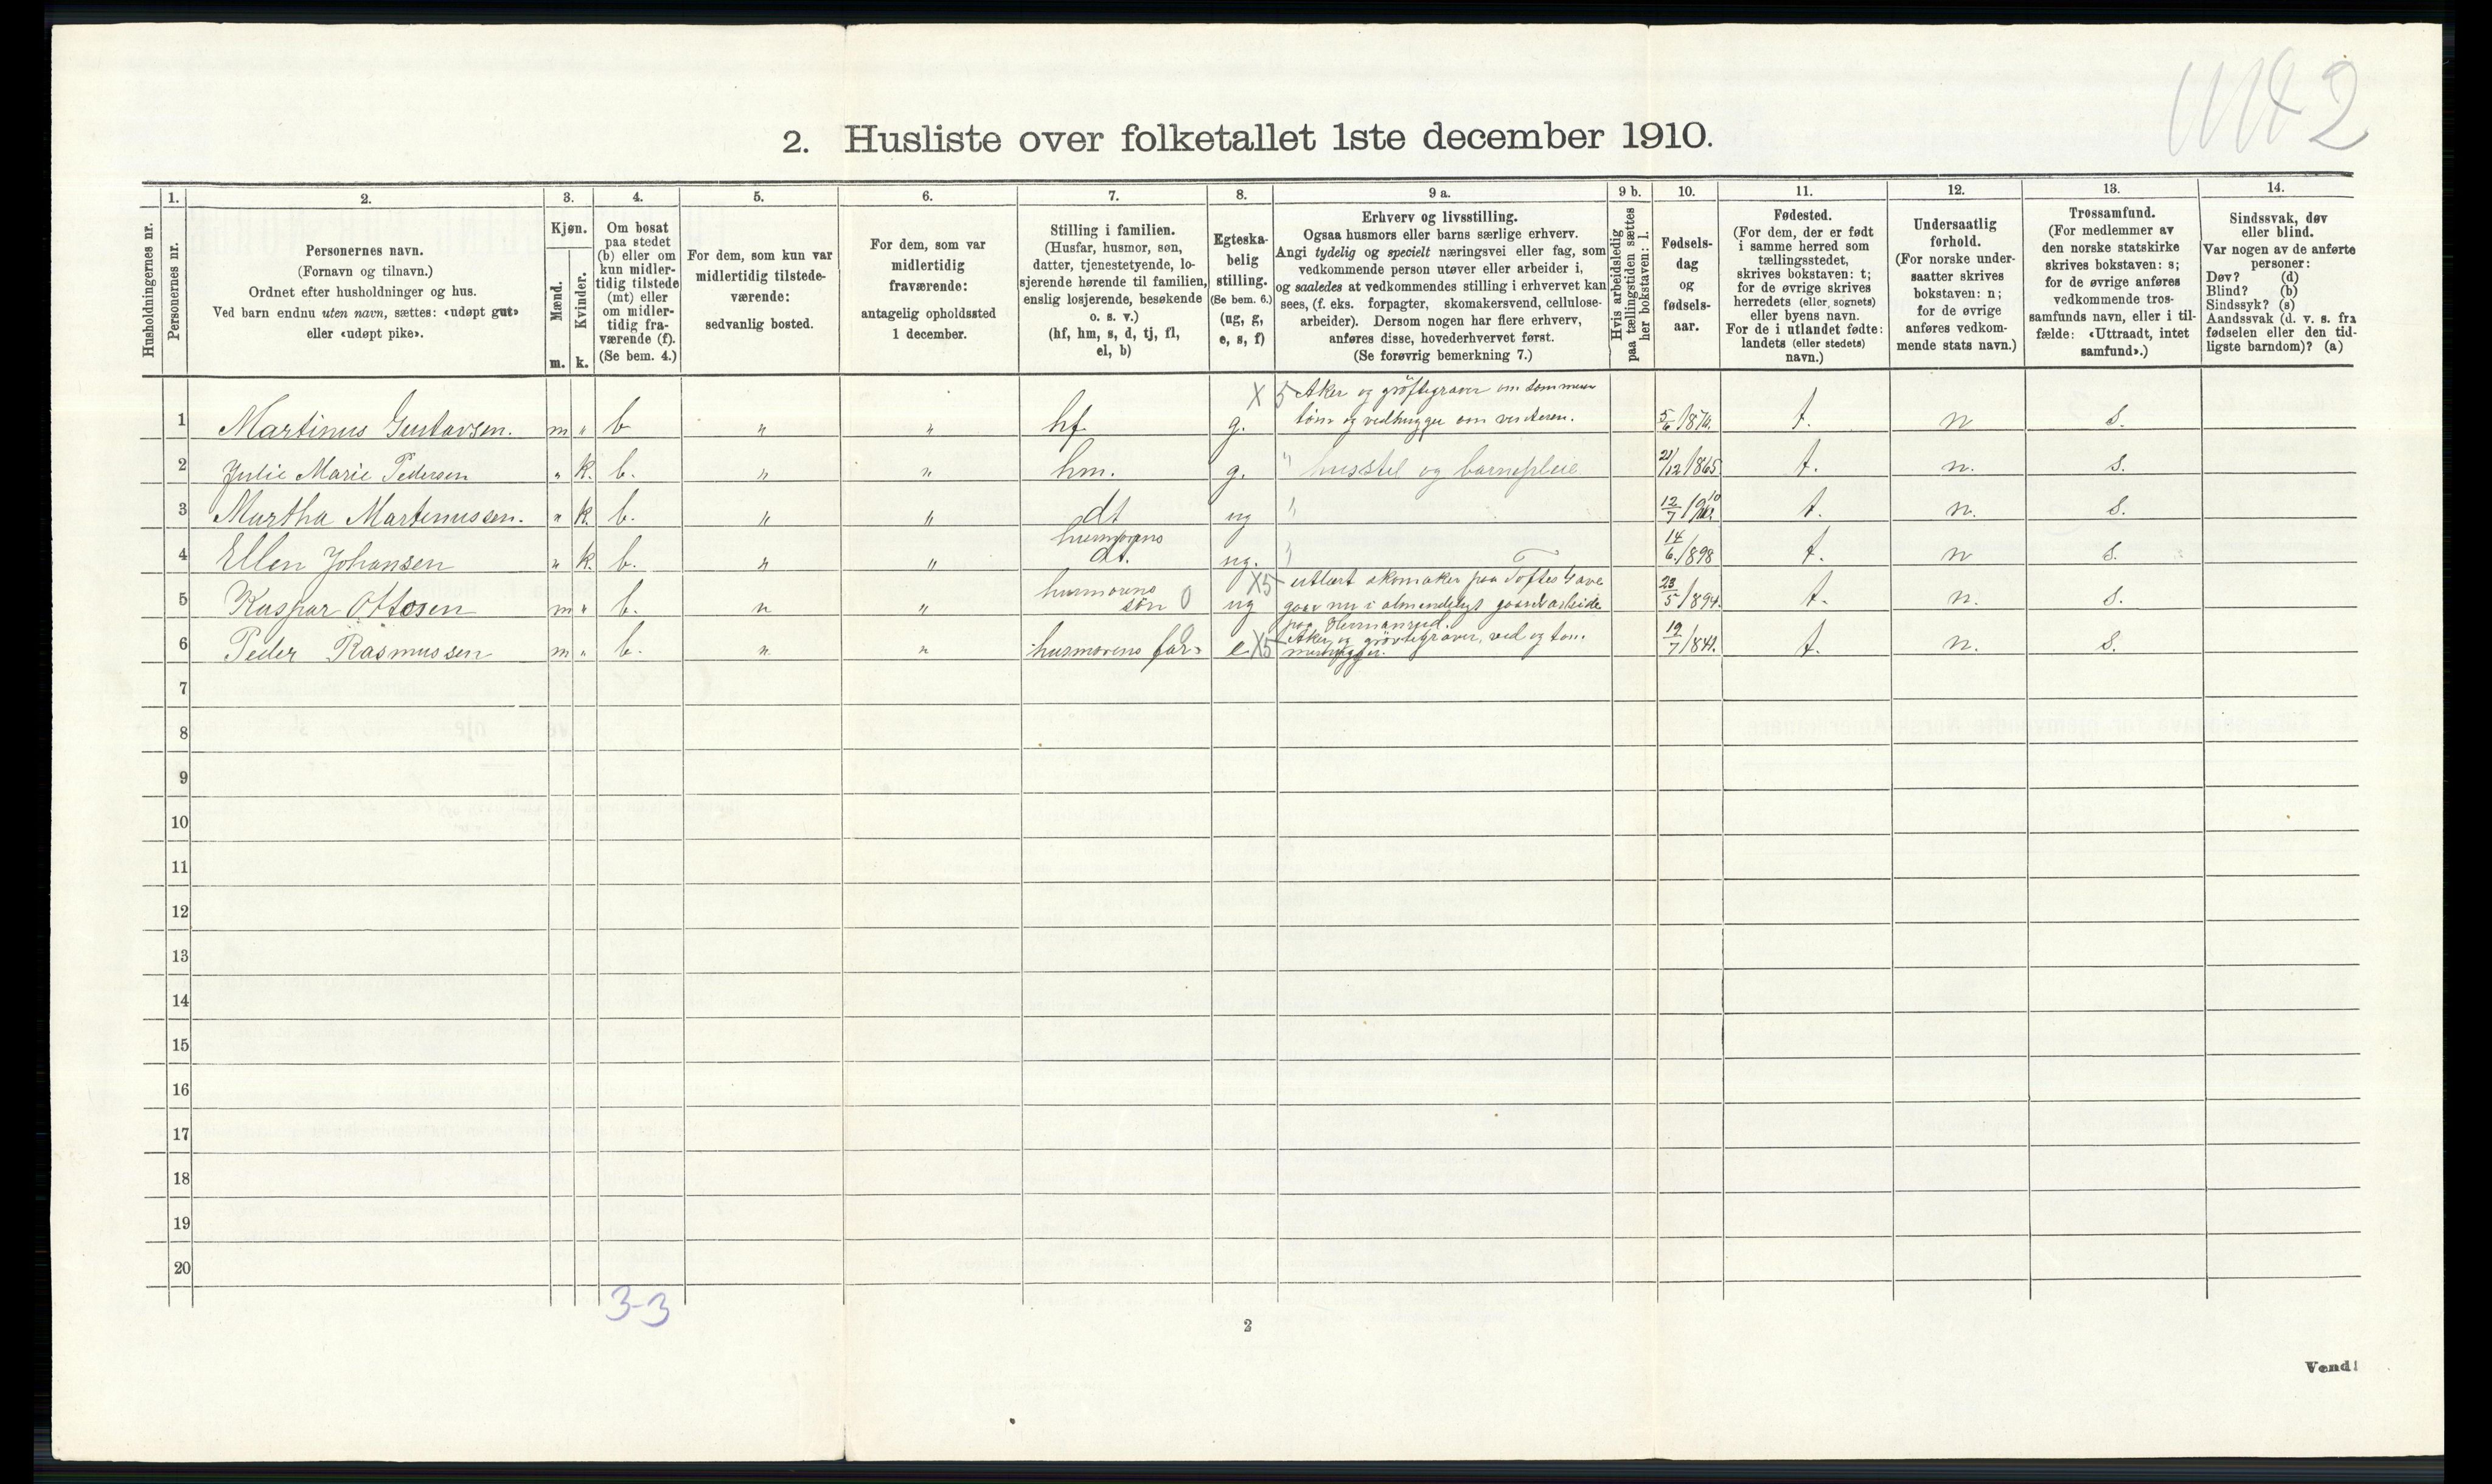 2. Husliste over folketallet 1ste december 1910.
2
Husholdningernes nr.
1. Personernes nr.
2. Personernes navn.
(Fornavn og tilnavn.)
Ordnet efter husholdninger og hus.
Ved barn endnu uten navn, sættes: «udøpt gut»
eller «udøpt pike».
3. Kjøn.
Mænd. m.
Kvinder. k.
4. Om bosat
paa stedet
(b) eller om
kun midler-
tidig tilstede
(mt) eller
om midler-
tidig fra-
værende (f).
(Se bem. 4.)
5. For dem, som kun var
midlertidig tilstede-
værende:
sedvanlig bosted.
6. For dem, som var
midlertidig
fraværende:
antagelig opholdssted
1 december.
7. Stilling i familien.
(Husfar, husmor, søn,
datter, tjenestetyende, lo-
sjerende hørende til familien,
enslig losjerende, besøkende
o. s. v.)
(hf, hm, s, d, tj, fl,
el, b)
8. Egteska-
belig
stilling.
(Se bem. 6.)
(ug, g,
e, s, f)
9 a. Erhverv og livsstilling.
Ogsaa husmors eller barns særlige erhverv.
Angi tydelig og specielt næringsvei eller fag, som
vedkommende person utøver eller arbeider i,
og saaledes at vedkommendes stilling i erhvervet kan
sees, (f. eks. forpagter, skomakersvend, cellulose-
arbeider). Dersom nogen har flere erhverv,
anføres disse, hovederhvervet først.
(Se forøvrig bemerkning 7.)
9 b. Hvis arbeidsledig
paa tællingstiden sættes
her bokstaven: l.
10. Fødsels-
dag
og
fødsels-
aar.
11. Fødested.
(For dem, der er født
i samme herred som
tællingsstedet,
skrives bokstaven: t;
for de øvrige skrives
herredets (eller sognets)
eller byens navn.
For de i utlandet fødte:
landets (eller stedets)
navn.)
12. Undersaatlig
forhold.
(For norske under-
saatter skrives
bokstaven: n;
for de øvrige
anføres vedkom-
mende stats navn.)
13. Trossamfund.
(For medlemmer av
den norske statskirke
skrives bokstaven: s;
for de øvrige anføres
vedkommende tros-
samfunds navn, eller i til-
fælde: «Uttraadt, intet
samfund».)
14. Sindssvak, døv
eller blind.
Var nogen av de anførte
personer:
Døv? (d)
Blind? (b)
Sindssyk? (s)
Aandssvak (d. v. s. fra
fødselen eller den tid-
ligste barndom)? (a)
X 5 Aker og grøftegraver om sommeren
1 Martinus Gustavsen. m " b " " hf. g. tøm og vedhugger om vinteren. 5/6 187 t. n s.
2 Julie Marie Pedersen " k. b. " " hm. g. " husstel og barnepleie 21/12 1865. t. n. s.
3 Martha Martinussen. " k. b. " " dt ug " 12/7 1910 t. n. s.
husmorens
4 Ellen Johansen " k. b. " " dt. ug. " 14/6 1898 t. n s.
husmorens X5 utlært skomaker paa Toftes Gave
5 Kaspar Ottosen m " b. " " søn 0 ug gaar nu i almendeligt gaardsarbeide 23/5 1894. t. n. s.
paa Hermansrud.
6 Peder Rasmussen m " b. " " husmorens far e X5 Aker og grøvtegraver, ved og tøm- 19/7 1841. t. n. s.
merhugger.
7
8
9
10
11
12
13
14
15
16
17
18
19
20
3-3
2
Vend!